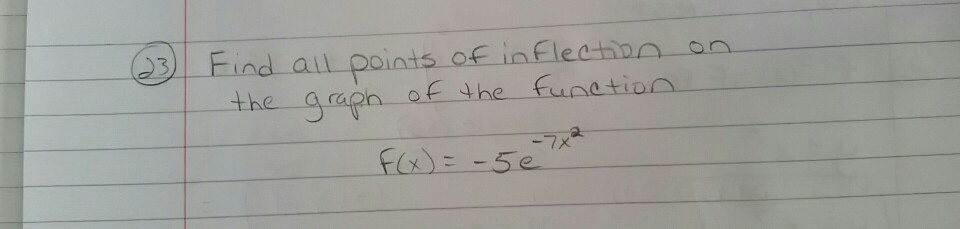 (23) Find all points of inflection on
the graph of the function
f(x) = -5e^{-7x^2}